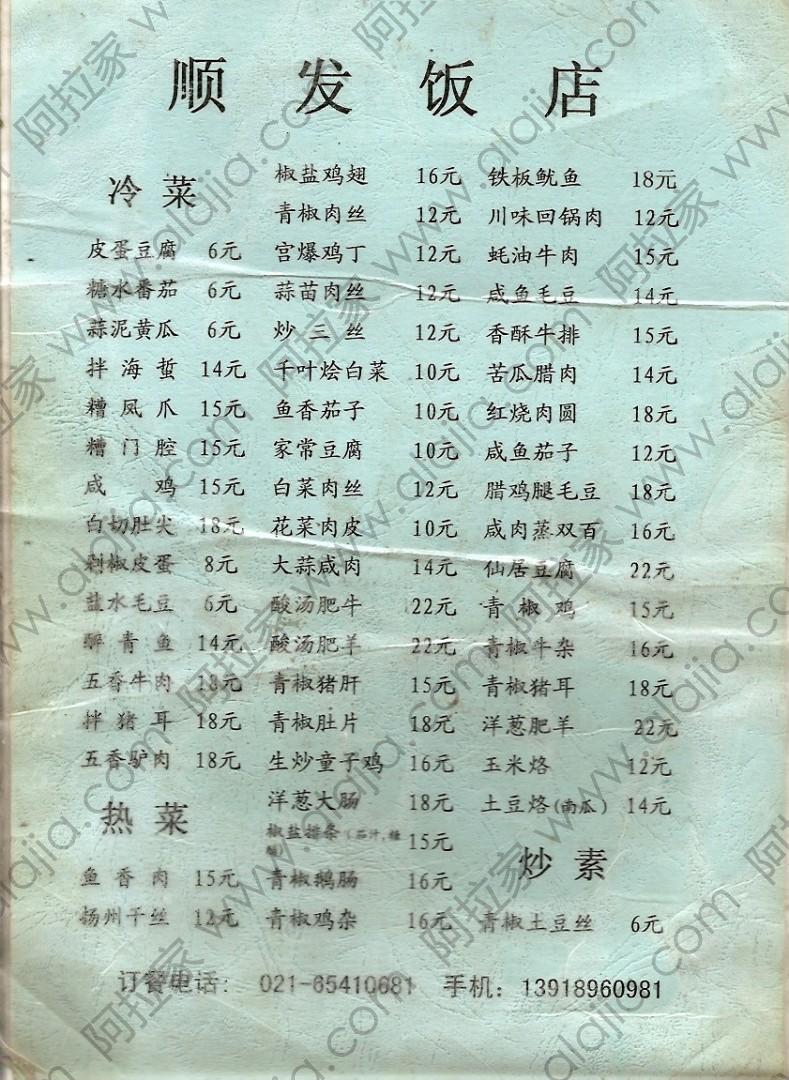 顺发饭店
冷菜
皮蛋豆腐 6元
糖水番茄 6元
蒜泥黄瓜 6元
拌海蜇 14元
糟凤爪 15元
糟门腔 15元
咸鸡 15元
白切肚尖 18元
剁椒皮蛋 8元
盐水毛豆 6元
醉青鱼 14元
五香牛肉 18元
拌猪耳 18元
五香驴肉 18元
热菜
鱼香肉 15元
扬州干丝 12元
椒盐鸡翅 16元
青椒肉丝 12元
宫爆鸡丁 12元
蒜苗肉丝 12元
炒三丝 12元
千叶烩白菜 10元
鱼香茄子 10元
家常豆腐 10元
白菜肉丝 12元
花菜肉皮 10元
大蒜咸肉 14元
酸汤肥牛 22元
酸汤肥羊 22元
青椒猪肝 15元
青椒肚片 18元
生炒童子鸡 16元
洋葱大肠 18元
椒盐排条(茄汁,糖醋) 15元
青椒鹅肠 16元
青椒鸡杂 16元
铁板鱿鱼 18元
川味回锅肉 12元
蚝油牛肉 15元
咸鱼毛豆 14元
香酥牛排 15元
苦瓜腊肉 14元
红烧肉圆 18元
咸鱼茄子 12元
腊鸡腿毛豆 18元
咸肉蒸双百 16元
仙居豆腐 22元
青椒鸡 15元
青椒牛杂 16元
青椒猪耳 18元
洋葱肥羊 22元
玉米烙 12元
土豆烙(南瓜) 14元
炒素
青椒土豆丝 6元
订餐电话: 021-65410681 手机: 13918960981
阿拉家 www.alajia.com